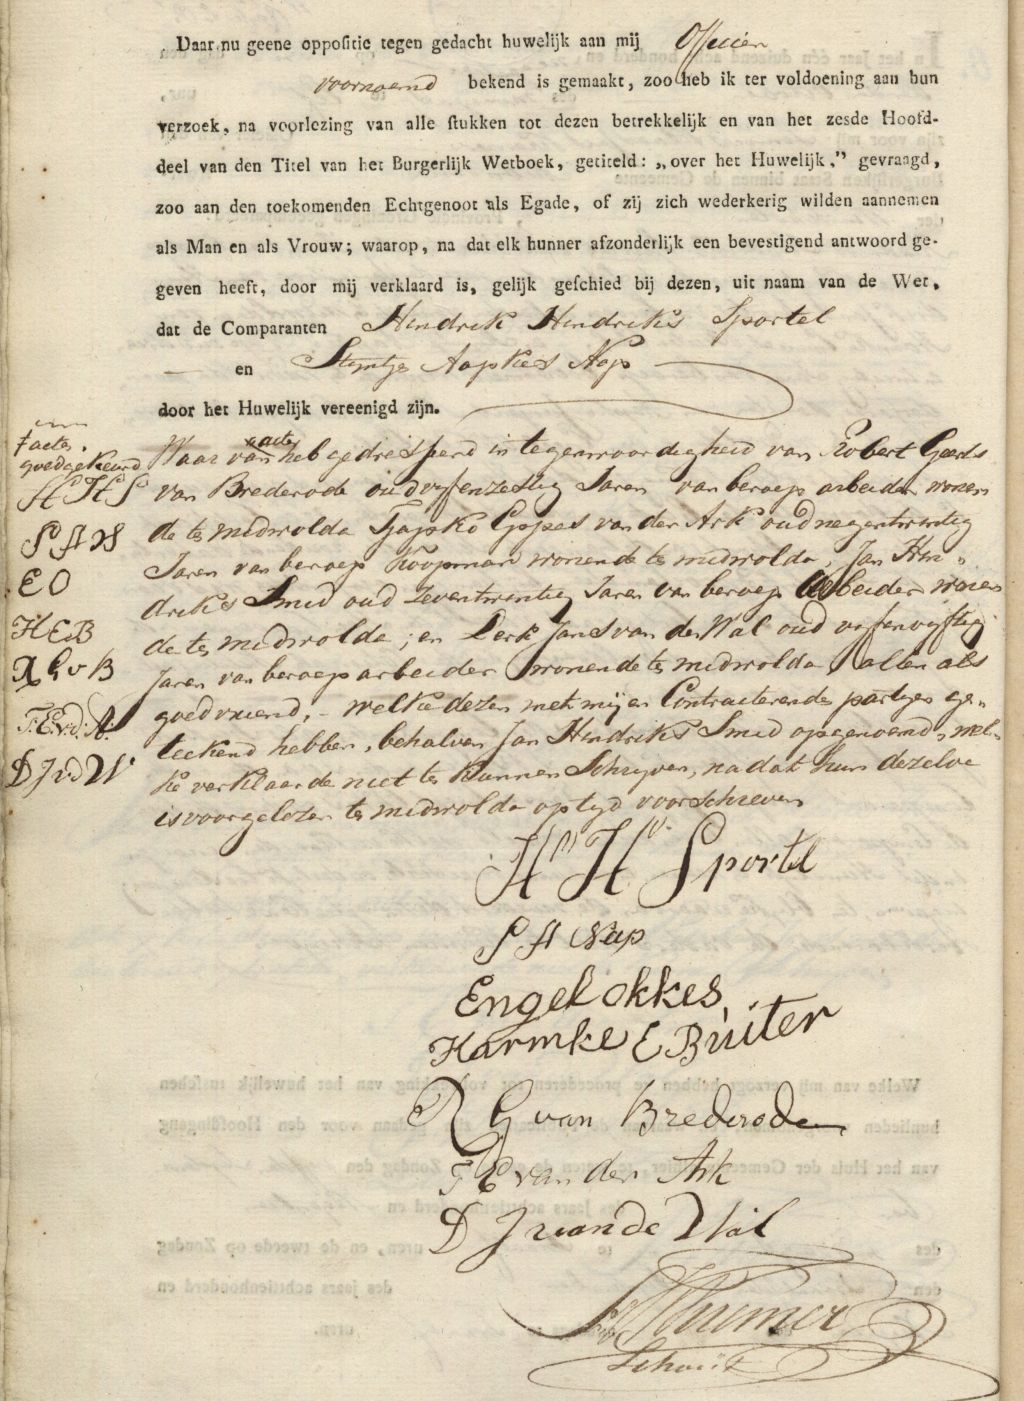 Daar nu geene oppositie tegen gedacht huwelijk aan mij Officier
voornoemd bekend is gemaakt, zoo heb ik ter voldoening aan hun
verzoek, na voorlezing van alle stukken tot dezen betrekkelijk en van het zesde Hoofd-
deel van den Titel van het Burgerlijk Wetboek, getiteld: „over het Huwelijk," gevraagd,
zoo aan den toekomenden Echtgenoot als Egade, of zij zich wederkerig wilden aannemen
als Man en als Vrouw; waarop, na dat elk hunner afzonderlijk een bevestigend antwoord ge-
geven heeft, door mij verklaard is, gelijk geschied bij dezen, uit naam van de Wet,
dat de Comparanten Hindrik Hindriks Sportel
en Styntje Aapkes Nap
door het Huwelijk vereenigd zijn.
Waar van acte heb gedresseerd in tegenwoordigheid van Robert Geerts
van Brederode oud vyfenzestig Jaren van beroep arbeider wonen
de te midwolda Tjapko Eppes van der Ark oud negentwintig
Jaren van beroep Koopman wonende te midwolda, Jan Hin-
driks Smid oud zeventwintig Jaren van beroep arbeider wonen
de te midwolda, en Derk Jans van der Wal oud vyfenvyftig
Jaren van beroep arbeider wonende te midwolda allen als
goed vriend, - welke dezen met my en Contracterende partyen ge-
teekend hebben, behalven Jan Hindriks Smid opgenoemd, wel-
ke verklaarde niet te kunnen Schryven, na dat hun dezelve
is voorgelezen te midwolda op tyd voorschreven
acte
goedgekeurd
H H S
S A N
E O
H E B
R G v B
T. E. v. d. A.
D J v d W
Hk Hk Sportel
S A Nap
Engel okkes
Harmke E Buiter
R G van Brederode
T E van der Ark
D J van de Wal
Schout